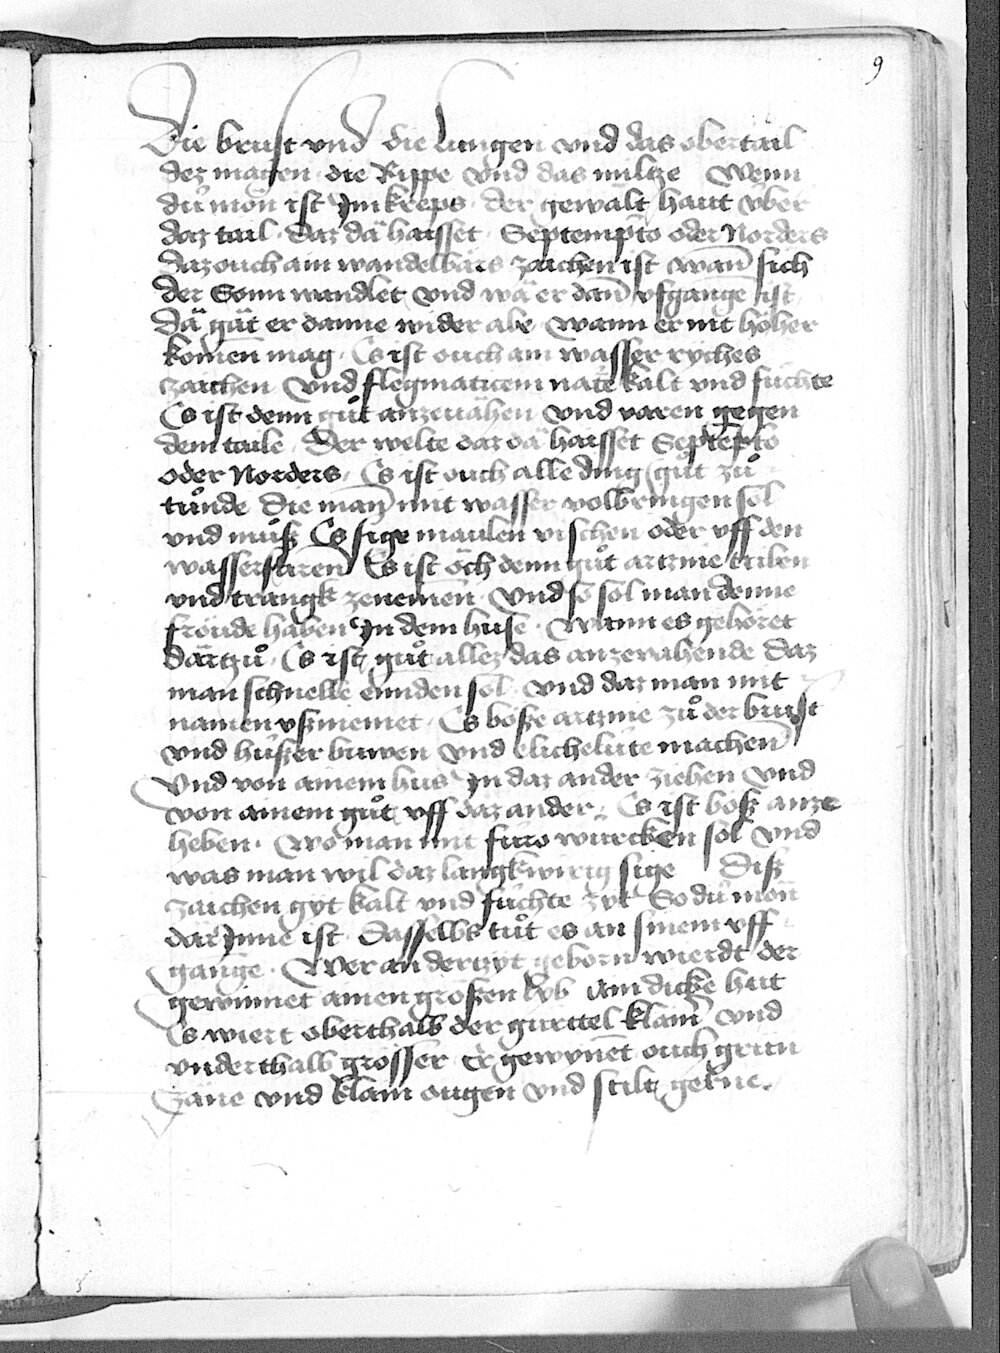 9
Die brust vnd die lungen vnd das obertail
dez magen · die Rippe vnd das miltze Wenn
du̍ mōn ist Jm kreeps · der gewalt haut v̍ber
daz tail · Daz dä haisset · Septemp̄to oder Norders
daz ouch ain wandelbärs zaichen ist wan̄ sich
der Sonn wandlet vnd wä er dan̄ vfgange ist
Dä gät er danne wider abe · wann er nit höher
komēn mag · Es ist ouch ain wasser ryches
zaichen vnd flegmaticem nate kalt vnd fu̍chte
Es ist denn gůt anzeuähen vnd varen gegen
dem taile · Der welte daz dä haisset Septep̄to
oder Norders · Es ist ouch alle ding gůt zů
tůnde die man̄ mit wasser volbringen sol
vnd můß Es sige maulen vischen oder vff den
wasser faren Es ist öch denn gůt artznie triben
vnd trangk zenemēn · vnd so sol man denne
fröude haben Jn dem huse · Wann es gehöret
därtzů · Es ist gůt allez das anzevahende Daz
man schnelle ennden sol · vnd daz man mit
namen vßniemet · Es böße artznie zů der brust
vnd hu̍ßer buwen vnd elichelu̍te machen
Vnd von ainem hus Jn daz ander ziehen vnd
von ainem gůt vff daz ander · Es ist böß anze
heben · Wo man mit fu̍ro wu̍rcken sol vnd
was man wil daz langkwirig sige Diß
zaichen gyt kalt vnd fu̍chte zyt So du̍ mōn
där Jnne ist · Dasselbs tůt es an sinem vff
gange · Wer an der tzyt geborn wierdt der
gewinnet ainen großen lyb ain dicke hut
Es wiert oberthalb der gurttel klain̄ vnd
vnderthalb grösser · Er gewynēt ouch grün
Zäne vnd klain ougen vnd stilt gerne.